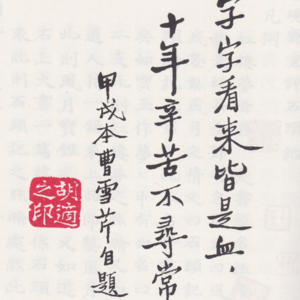 字字看来皆是血，
十年辛苦不尋常
甲戌本曹雪芹自題
胡適之印